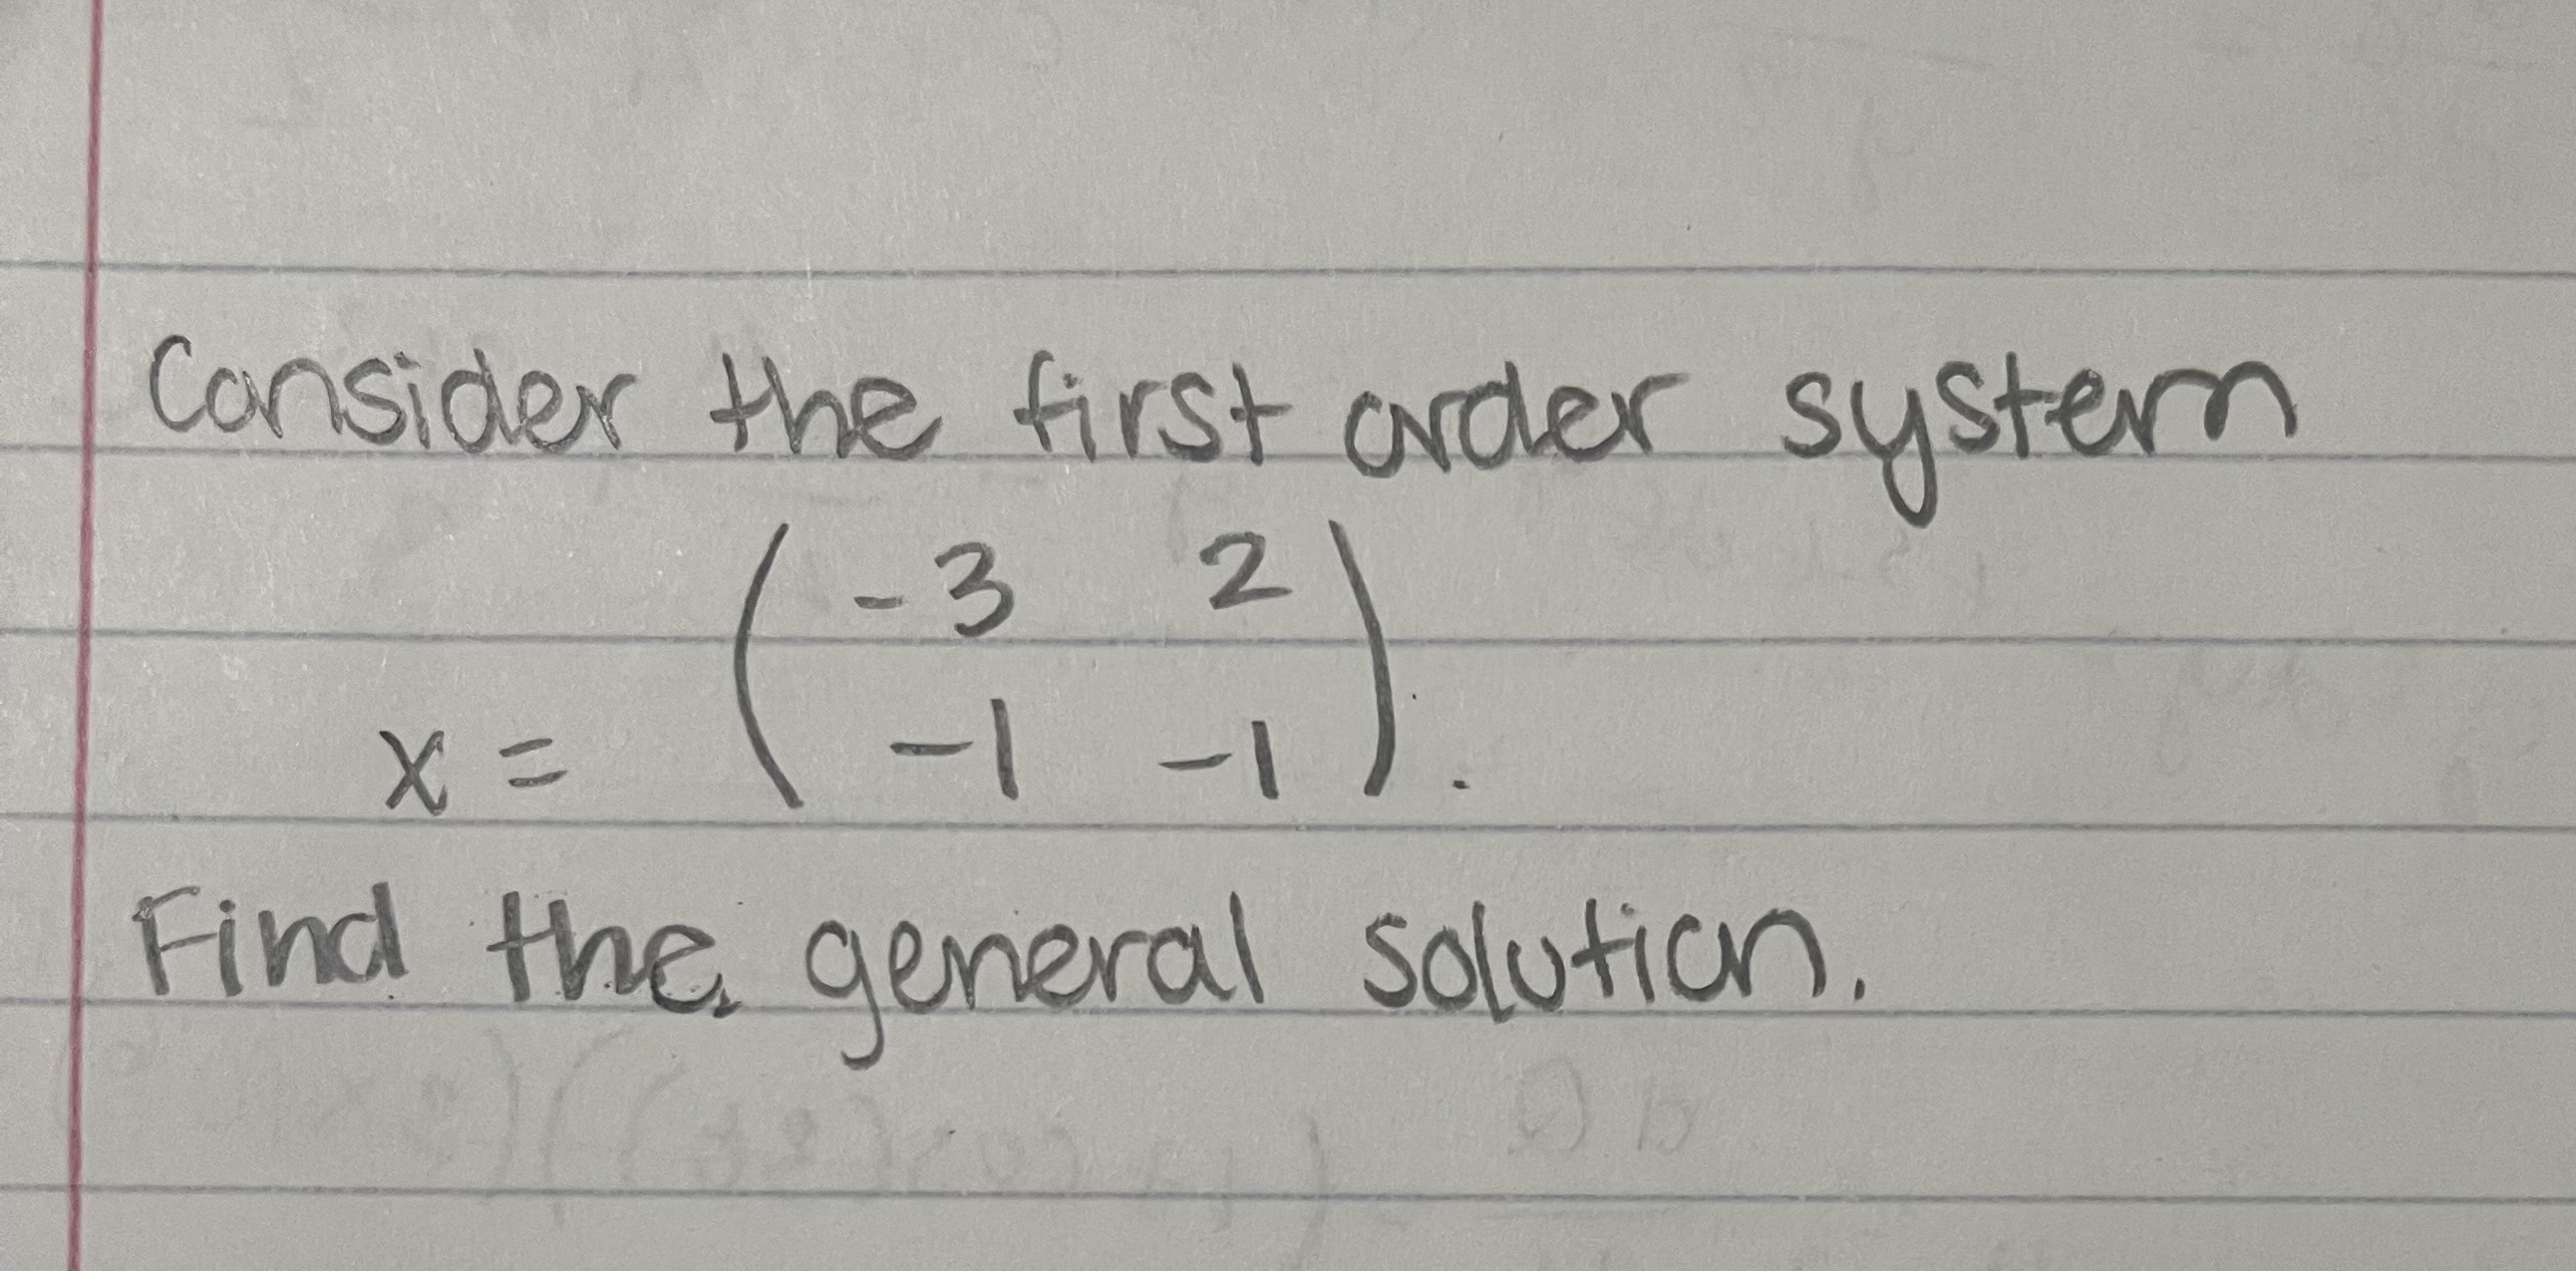 Consider the first order system
x = ( -3 2
-1 -1 ).
Find the general solution.